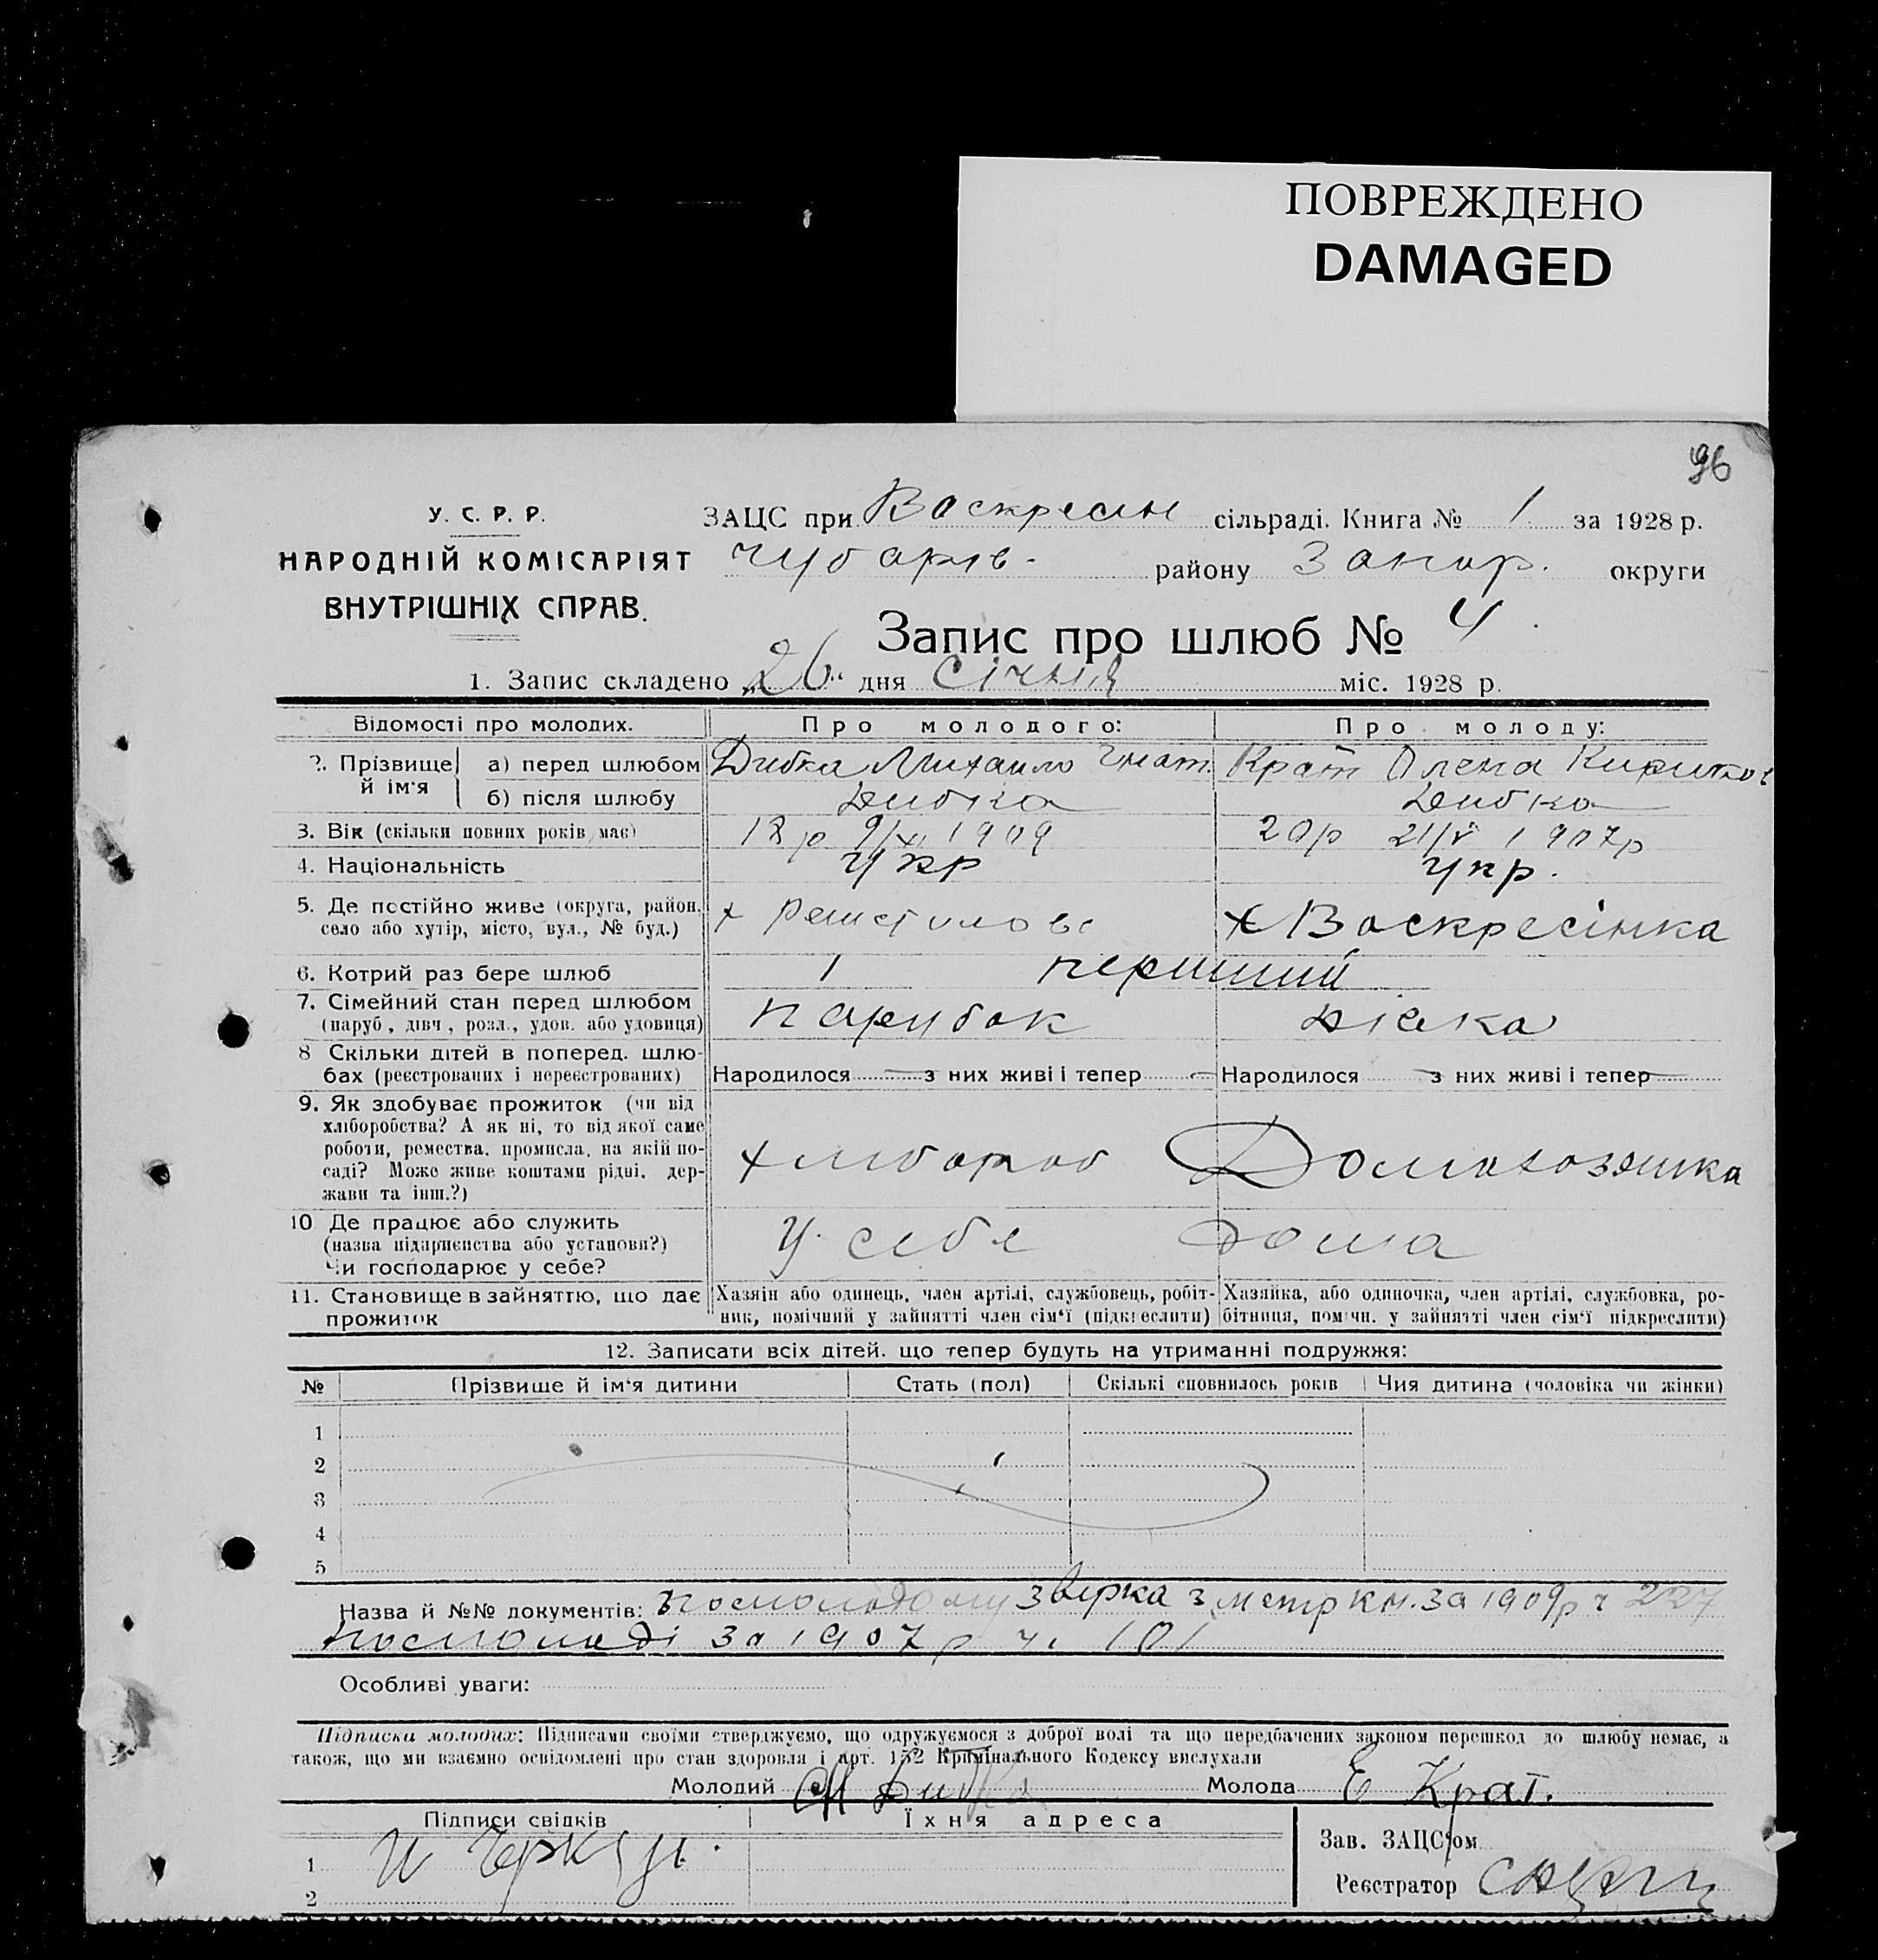 ПОВРЕЖДЕНО
DAMAGED
96
У. С. Р. Р.
НАРОДНІЙ КОМІСАРІЯТ
ВНУТРІШНІХ СПРАВ.
ЗАЦС при Воскресен сільраді. Книга № 1 за 1928 р.
Чубарів. району Запор. округи
Запис про шлюб № 4
1. Запис складено „26“ дня Січня міс. 1928 р.
Відомості про молодих. Про молодого: Про молоду:
2. Прізвище й ім'я а) перед шлюбом Дибка Михайло Гнат. Крат Олена Кирилов
б) після шлюбу Дибка Дибка
3. Вік (скільки повних років має) 18 р 9/XI 1909 20 р 21/V 1907 р
4. Національність Укр Укр.
5. Де постійно живе (округа, район, х Воскресінка
село або хутір, місто, вул., № буд.)
6. Котрий раз бере шлюб 1 перший
7. Сімейний стан перед шлюбом парубок дівка
(паруб., дівч., розл., удов. або удовиця)
8 Скільки дітей в поперед. шлю-
бах (реєстрованих і нереєстрованих) Народилося — з них живі і тепер — Народилося — з них живі і тепер —
9. Як здобуває прожиток (чи від
хліборобства? А як ні, то від якої саме
роботи, ремества, промисла, на якій по- хлібороб Домохозяйка
саді? Може живе коштами рідні, дер-
жави та інш.?)
10 Де працює або служить У себе дома
(назва підприємства або установи?)
Чи господарює у себе?
11. Становище в зайняттю, що дає Хазяін або одинець, член артілі, службовець, робіт- Хазяйка, або одиночка, член артілі, службовка, ро-
прожиток ник, помічний у зайнятті член сім'ї (підкреслити) бітниця, помічн. у зайнятті член сім'ї підкреслити)
12. Записати всіх дітей, що тепер будуть на утриманні подружжя:
№ Прізвище й ім'я дитини Стать (пол) Скількі сповнилось років Чия дитина (чоловіка чи жінки)
1
2
3
4
5
Назва й №№ документів: по молодому звірка з метр кн. за 1909 р ч 227
по молоді за 1907 р ч. 101
Особливі уваги:
Підписка молодих: Підписами своїми стверджуємо, що одружуємося з доброї волі та що передбачених законом перешкод до шлюбу немає, а
також, що ми взаємно освідомлені про стан здоровля і арт. 152 Крамінального Кодексу вислухали
Молодий М Дибка Молода Е Крат.
Підписи свідків Їхня адреса
Зав. ЗАЦС'ом
1
Реєстратор
2